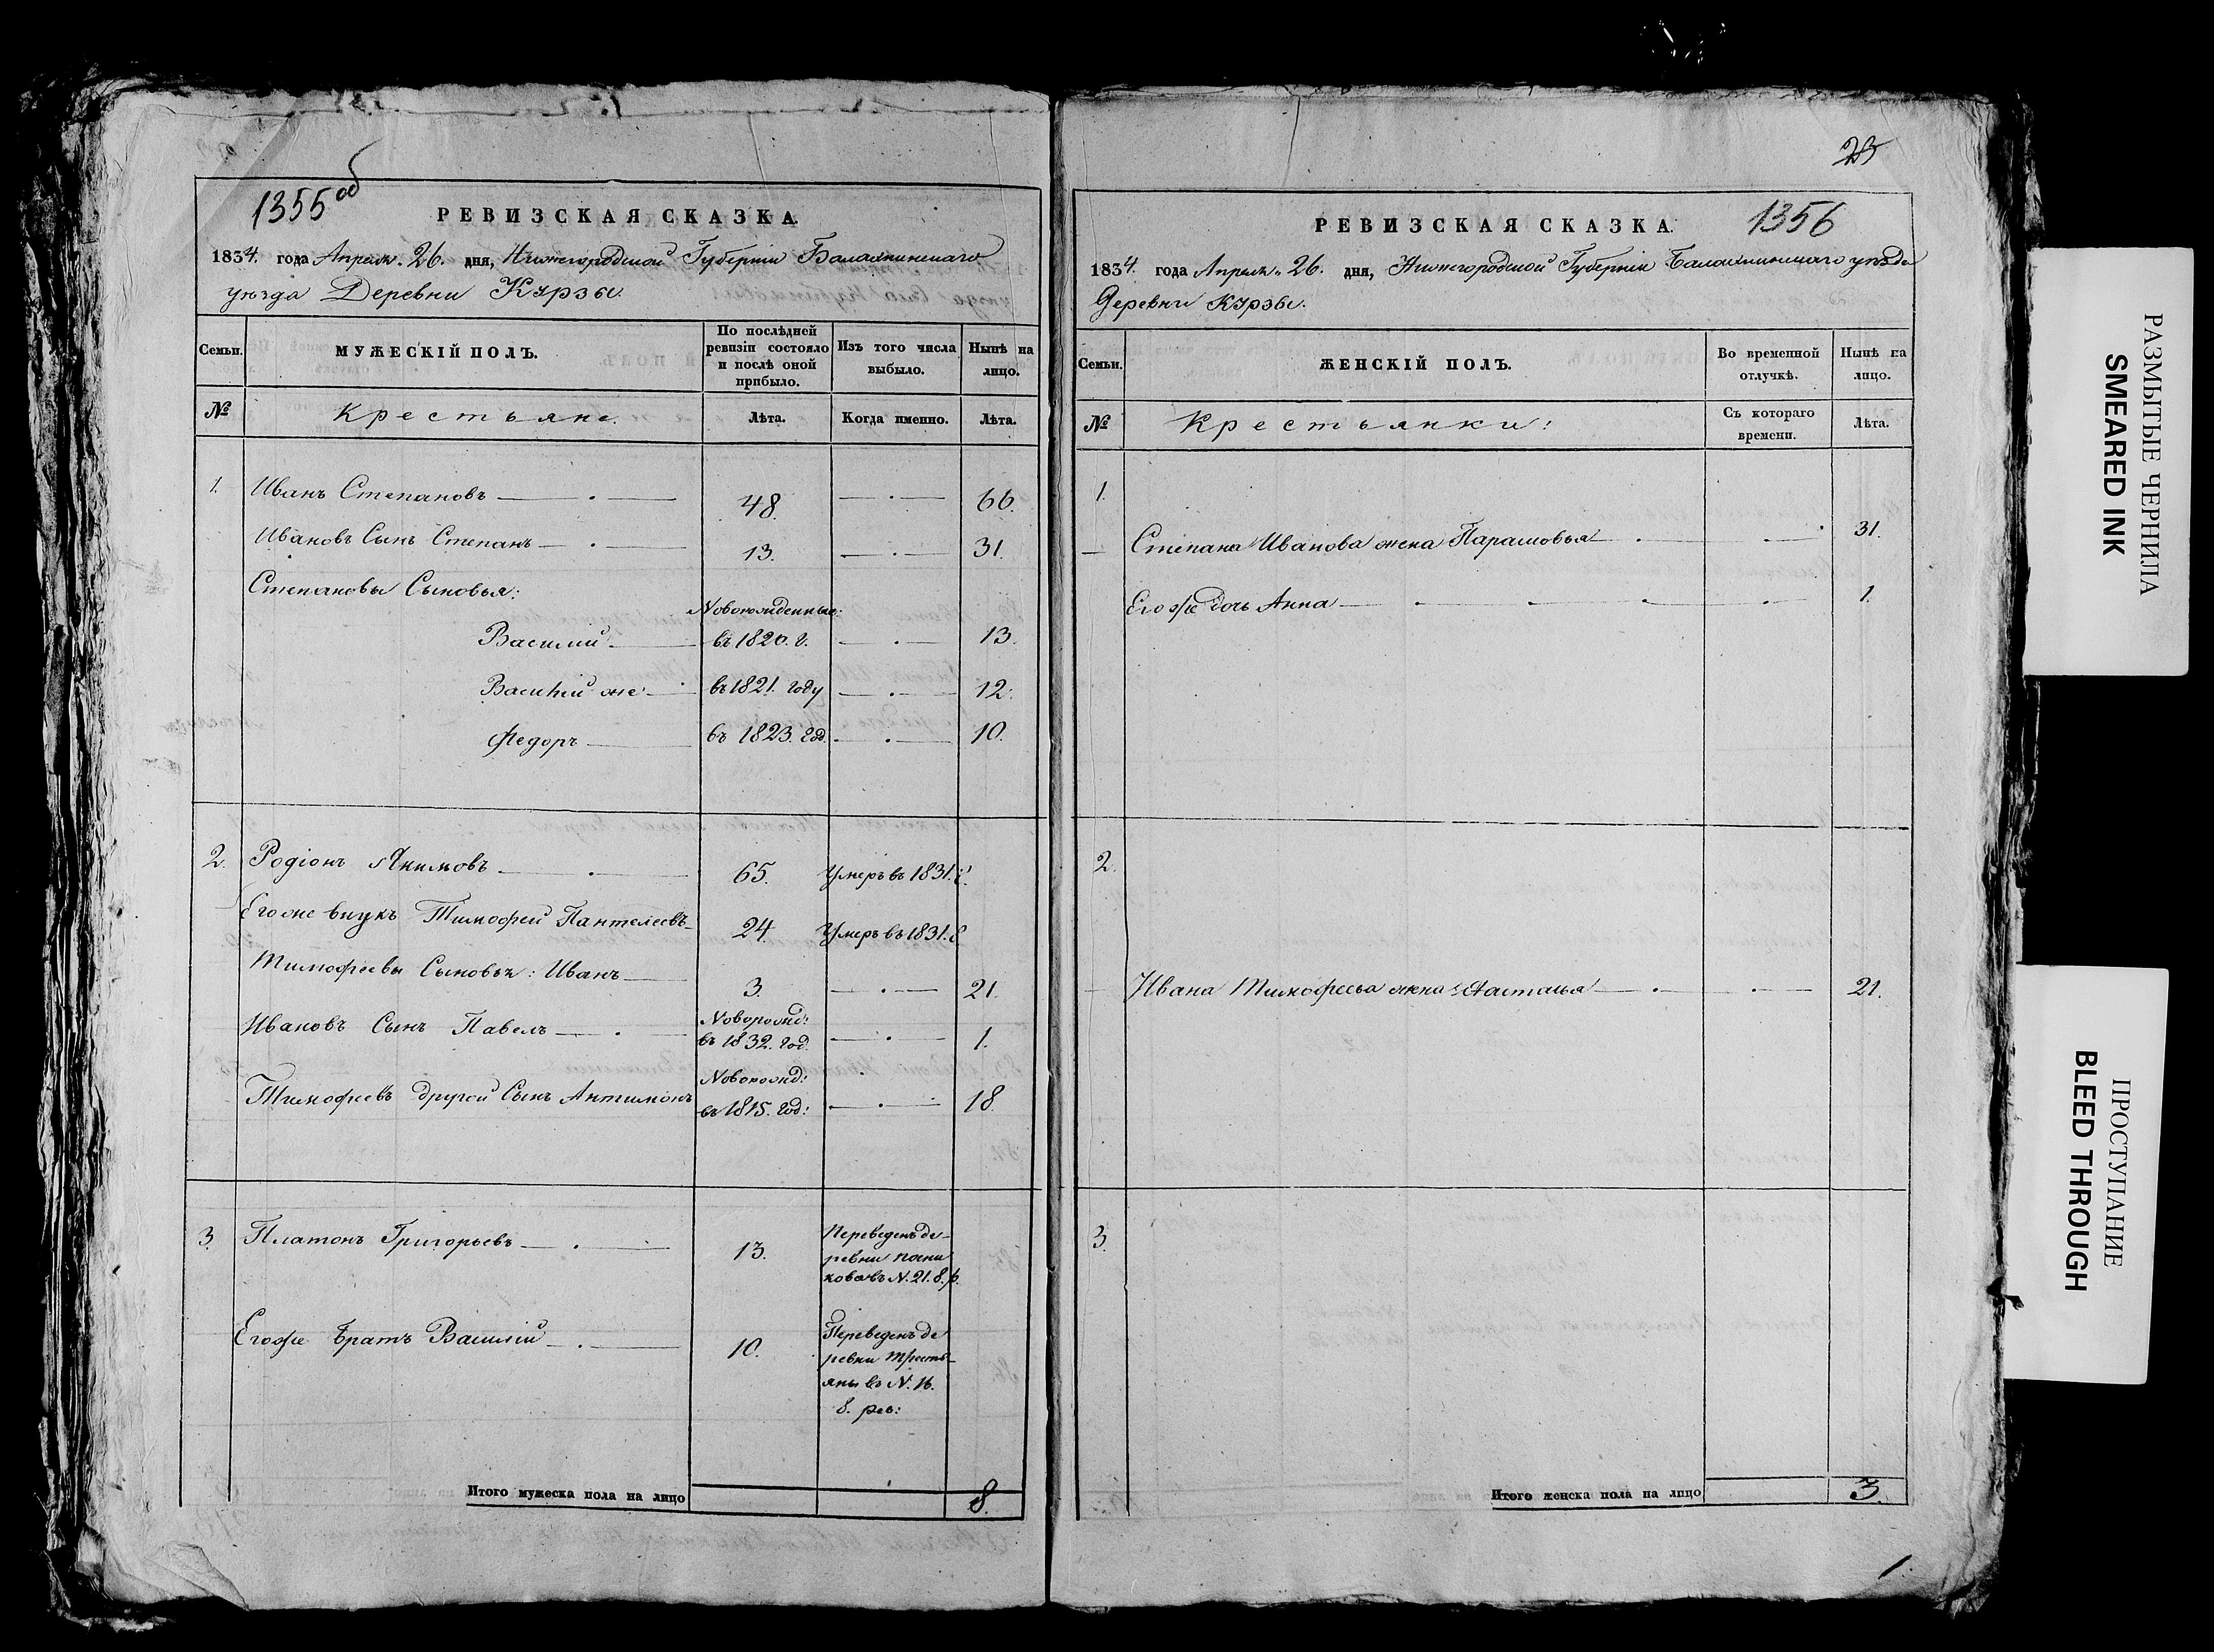 1355 об
РЕВИЗСКАЯ СКАЗКА.
1834. года Апреля. 26. дня, Нижегородской Губерніи Балахнинскаго
уѣзда Деревни Курзы.
Семьи. МУЖЕСКІЙ ПОЛЪ. По послѣдней ревизіи состояло и послѣ оной прибыло. Изъ того числа выбыло. Нынѣ на лицо.
№ Крестьяне. Лѣта. Когда именно. Лѣта.
1. Иванъ Степановъ 48. 66.
Ивановъ Сынъ Степанъ 13. 31.
Степановы Сыновья:
Новорожденные:
Василий въ 1820. г. 13.
Василий же въ 1821. году 12.
Федоръ въ 1823. год. 10.
2. Родіонъ Якимовъ 65. Умеръ въ 1831. г.
Его же внукъ Тимофей Пантелеевъ 24. Умеръ въ 1831. г.
Тимофеевы Сыновья: Иванъ 3. 21.
Ивановъ Сынъ Павелъ Новорожд: въ 1832. год. 1.
Тимофеевъ другой Сынъ Антимонъ Новорожд: въ 1815. год: 18.
3. Платонъ Григорьевъ 13. Переведенъ де-
ревни
въ N. 21. 8. р.
Его же братъ Василий 10. Переведенъ де
ревни Тресть-
яны въ N. 16.
8. рев:
Итого мужеска пола на лицо 8.
25
РЕВИЗСКАЯ СКАЗКА. 1356
1834. года Апреля. 26. дня, Нижегородской Губерніи Балахнинскаго уѣзда
Деревни Курзы.
Семьи. ЖЕНСКІЙ ПОЛЪ. Во временной отлучкѣ. Нынѣ на лицо.
№ Крестьянки: Съ котораго времени. Лѣта.
1.
Степана Иванова жена Парасковья 31.
Его же дочь Анна 1.
2.
Ивана Тимофеева жена Настасья 21.
3.
Итого женска пола на лицо 3.
1.
РАЗМЫТЫЕ ЧЕРНИЛА
SMEARED INK
ПРОСТУПАНИЕ
BLEED THROUGH